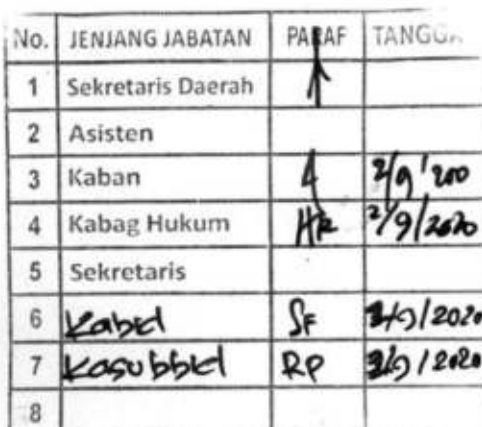 No. JENJANG JABATAN PARAF
1 Sekretaris Daerah
2 Asisten
3 Kaban
4 Kabag Hukum HR 2/9/2020
5 Sekretaris
6 Kabid SF /2020
7 Kasubbid RP /2020
8